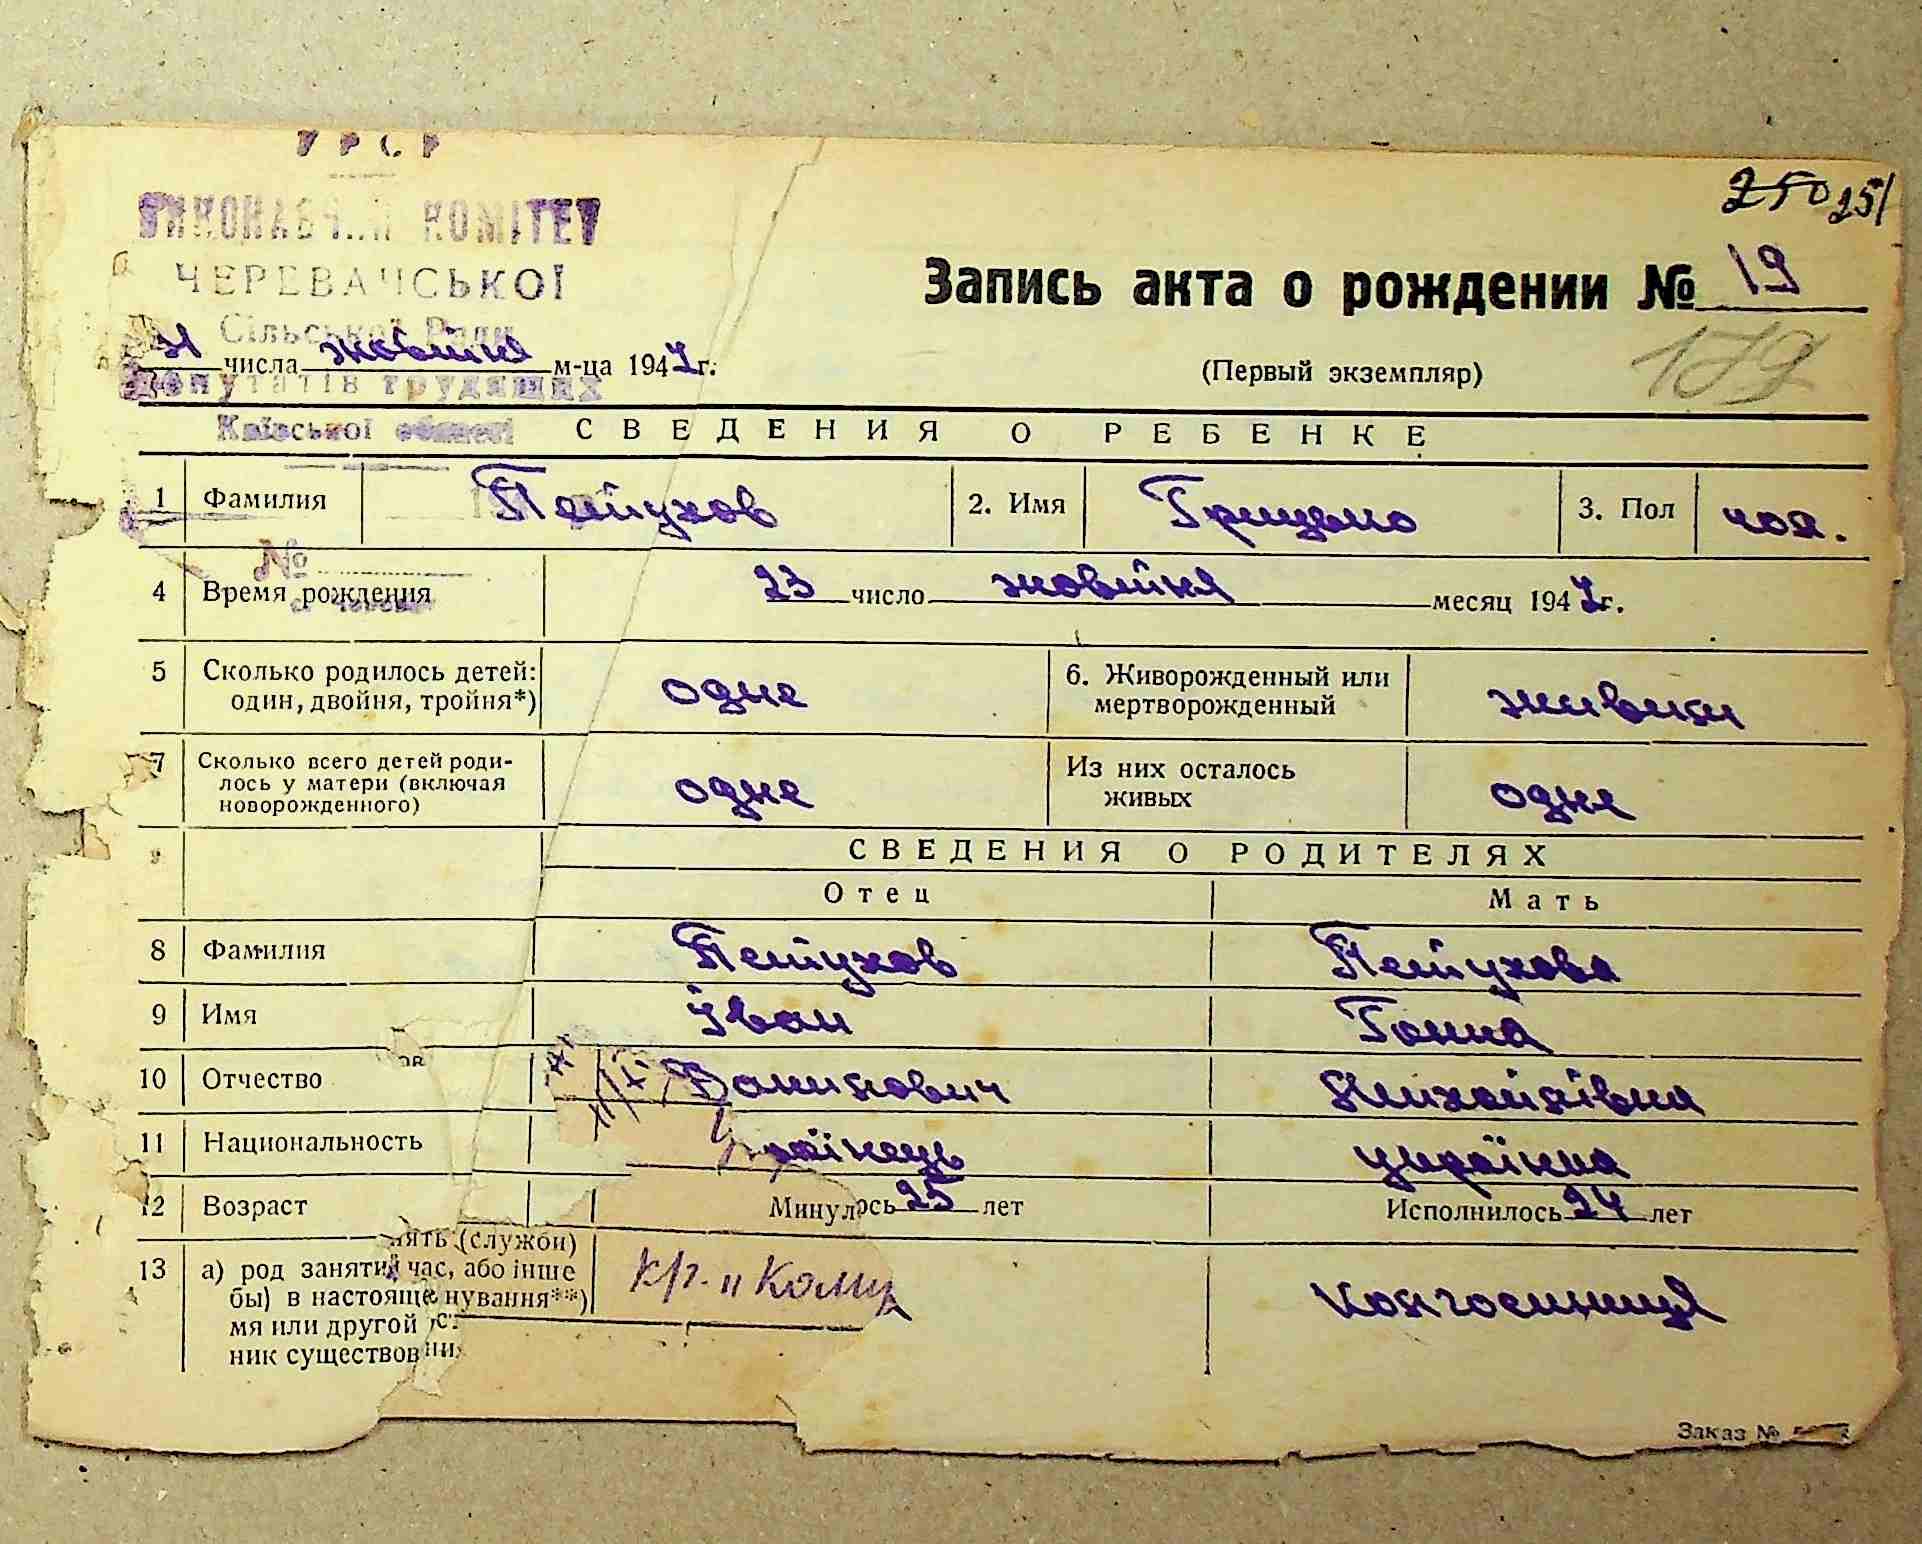 УРСР
ВИКОНАВЧИЙ КОМІТЕТ
ЧЕРЕВАЧСЬКОЇ
Сільської Ради
депутатів трудящих
Київської області
№
250 251
Запись акта о рождении № 19
179
31 числа жовтня м-ца 1947 г.
(Первый экземпляр)
СВЕДЕНИЯ О РЕБЕНКЕ
1 Фамилия Петухов 2. Имя Грицько 3. Пол чол.
4 Время рождения 23 число жовтня месяц 1947 г.
5 Сколько родилось детей: один, двойня, тройня*) одне 6. Живорожденный или мертворожденный живим
7 Сколько всего детей родилось у матери (включая новорожденного) одне Из них осталось живых одне
СВЕДЕНИЯ О РОДИТЕЛЯХ
Отец Мать
8 Фамилия Петухов Петухова
9 Имя Іван Ганна
10 Отчество Михайлівна
11 Национальность українець українка
12 Возраст Минулось 25 лет Исполнилось 24 лет
13 а) род занятий час, або інше
нять (служби)
бы) в настояще нування**)
мя или другой
ник существов
кр. п Кому
колгоспниця
Заказ №